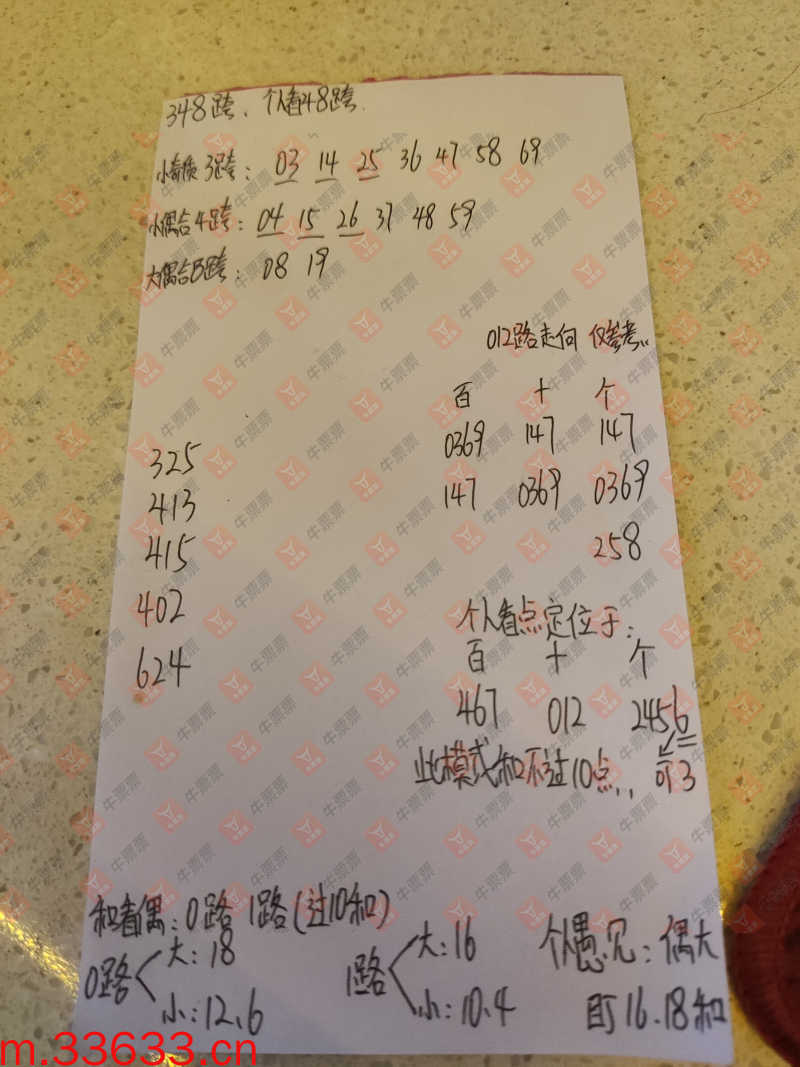 348跨、个人看48跨.
小奇质3跨: 03 14 25 36 47 58 69
小偶合4跨: 04 15 26 37 48 59
大偶合8跨: 08 19
012路走向 仅参考..
百 十 个
0369 147 147
147 0369 0369
258
325
413
415
402
624
个人看点定位于:
百 十 个
467 012 2456
此模式和不过10点,, 可3
和看偶: 0路 1路(过10和)
0路 大: 18
小: 12、6
1路 大: 16
小: 10、4
个人愚见: 偶大
盯16.18和
牛票票
m.33633.cn